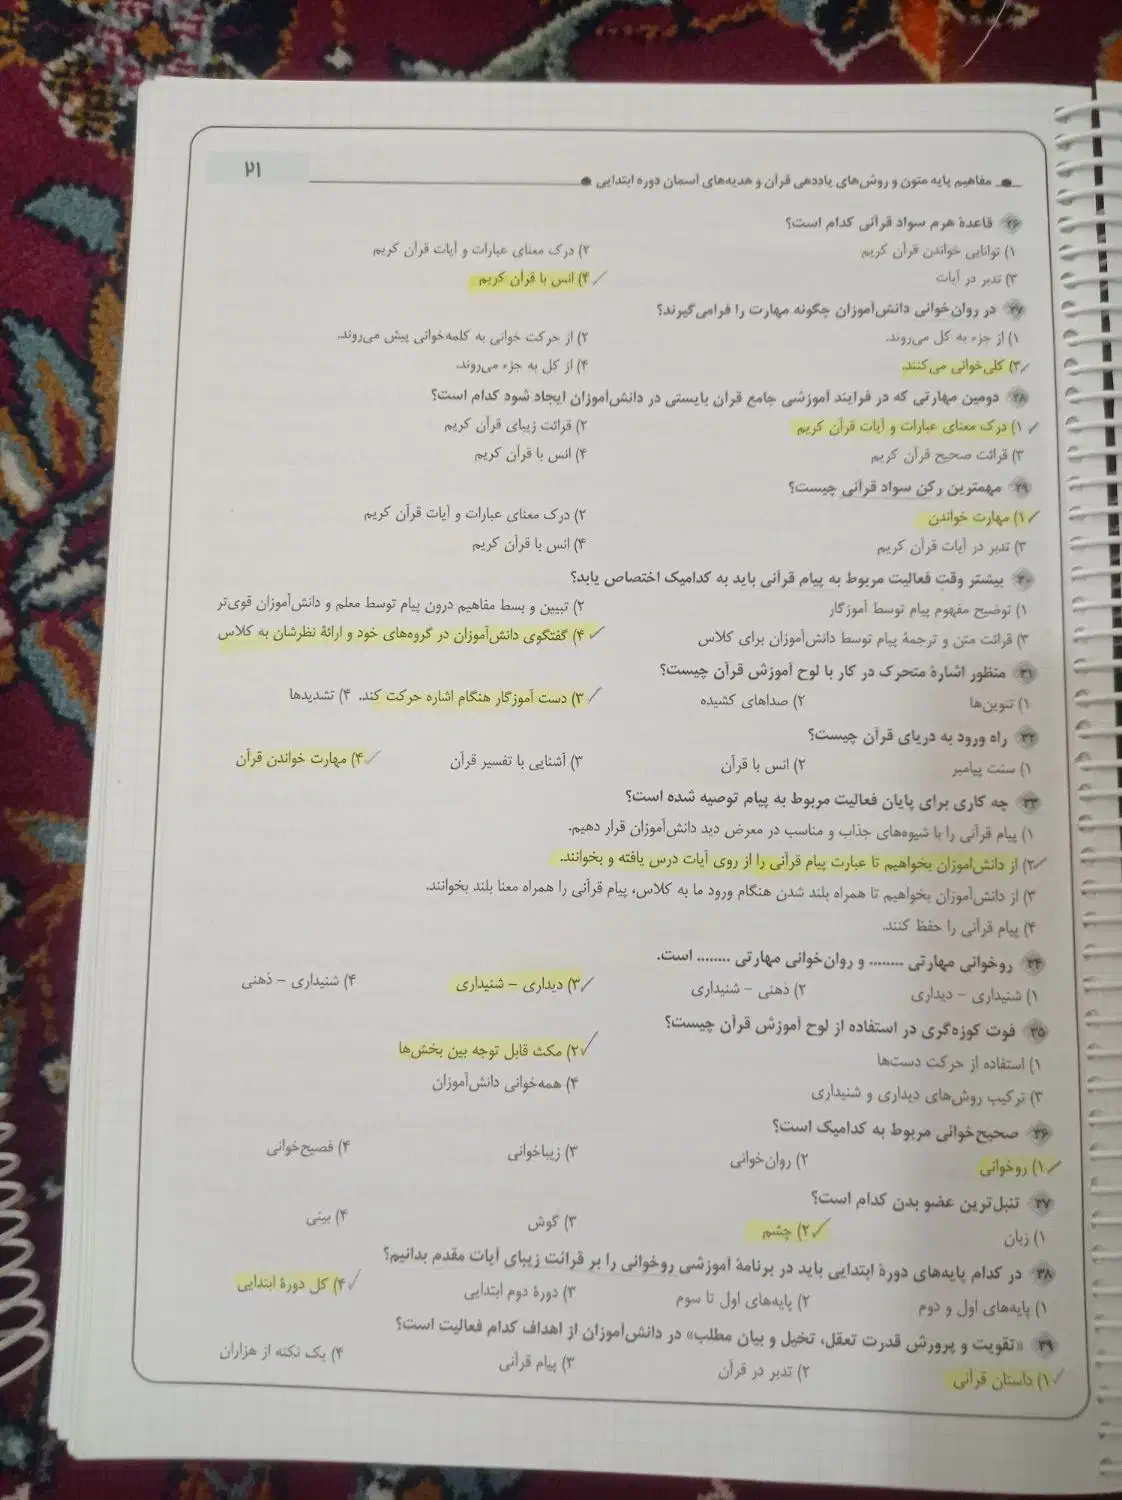 مفاهیم پایه متون و روش‌های یاددهی قرآن و هدیه‌های آسمان دوره ابتدایی ۲۱
۲۶ قاعدهٔ هرم سواد قرآنی کدام است؟
۱) توانایی خواندن قرآن کریم ۲) درک معنای عبارات و آیات قرآن کریم
۳) تدبر در آیات ۴) انس با قرآن کریم
۲۷ در روان‌خوانی دانش‌آموزان چگونه مهارت را فرامی‌گیرند؟
۱) از جزء به کل می‌روند. ۲) از حرکت خوانی به کلمه‌خوانی پیش می‌روند.
۳) کلی‌خوانی می‌کنند. ۴) از کل به جزء می‌روند.
۲۸ دومین مهارتی که در فرایند آموزشی جامع قرآن بایستی در دانش‌آموزان ایجاد شود کدام است؟
۱) درک معنای عبارات و آیات قرآن کریم ۲) قرائت زیبای قرآن کریم
۳) قرائت صحیح قرآن کریم ۴) انس با قرآن کریم
۲۹ مهمترین رکن سواد قرآنی چیست؟
۱) مهارت خواندن ۲) درک معنای عبارات و آیات قرآن کریم
۳) تدبر در آیات قرآن کریم ۴) انس با قرآن کریم
۳۰ بیشتر وقتِ فعالیت مربوط به پیام قرآنی باید به کدامیک اختصاص یابد؟
۱) توضیح مفهوم پیام توسط آموزگار ۲) تبیین و بسط مفاهیم درون پیام توسط معلم و دانش‌آموزان قوی‌تر
۳) قرائت متن و ترجمهٔ پیام توسط دانش‌آموزان برای کلاس ۴) گفتگوی دانش‌آموزان در گروه‌های خود و ارائهٔ نظرشان به کلاس
۳۱ منظور اشارهٔ متحرک در کار با لوح آموزش قرآن چیست؟
۱) تنوین‌ها ۲) صداهای کشیده ۳) دست آموزگار هنگام اشاره حرکت کند. ۴) تشدیدها
۳۲ راه ورود به دریای قرآن چیست؟
۱) سنت پیامبر ۲) انس با قرآن ۳) آشنایی با تفسیر قرآن ۴) مهارت خواندن قرآن
۳۳ چه کاری برای پایان فعالیت مربوط به پیام توصیه شده است؟
۱) پیام قرآنی را با شیوه‌های جذاب و مناسب در معرض دید دانش‌آموزان قرار دهیم.
۲) از دانش‌آموزان بخواهیم تا عبارت پیام قرآنی را از روی آیات درس یافته و بخوانند.
۳) از دانش‌آموزان بخواهیم تا همراه بلند شدن هنگام ورود ما به کلاس، پیام قرآنی را همراه معنا بلند بخوانند.
۴) پیام قرآنی را حفظ کنند.
۳۴ روخوانی مهارتی ........ و روان‌خوانی مهارتی ........ است.
۱) شنیداری – دیداری ۲) ذهنی – شنیداری ۳) دیداری – شنیداری ۴) شنیداری – ذهنی
۳۵ فوت کوزه‌گری در استفاده از لوح آموزش قرآن چیست؟
۱) استفاده از حرکت دست‌ها ۲) مکث قابل توجه بین بخش‌ها
۳) ترکیب روش‌های دیداری و شنیداری ۴) همه‌خوانی دانش‌آموزان
۳۶ صحیح‌خوانی مربوط به کدامیک است؟
۱) روخوانی ۲) روان‌خوانی ۳) زیباخوانی ۴) فصیح‌خوانی
۳۷ تنبل‌ترین عضو بدن کدام است؟
۱) زبان ۲) چشم ۳) گوش ۴) بینی
۳۸ در کدام پایه‌های دورهٔ ابتدایی باید در برنامهٔ آموزشی روخوانی را بر قرائت زیبای آیات مقدم بدانیم؟
۱) پایه‌های اول و دوم ۲) پایه‌های اول تا سوم ۳) دورهٔ دوم ابتدایی ۴) کل دورهٔ ابتدایی
۳۹ «تقویت و پرورش قدرت تعقل، تخیل و بیان مطلب» در دانش‌آموزان از اهداف کدام فعالیت است؟
۱) داستان قرآنی ۲) تدبر در قرآن ۳) پیام قرآنی ۴) یک نکته از هزاران